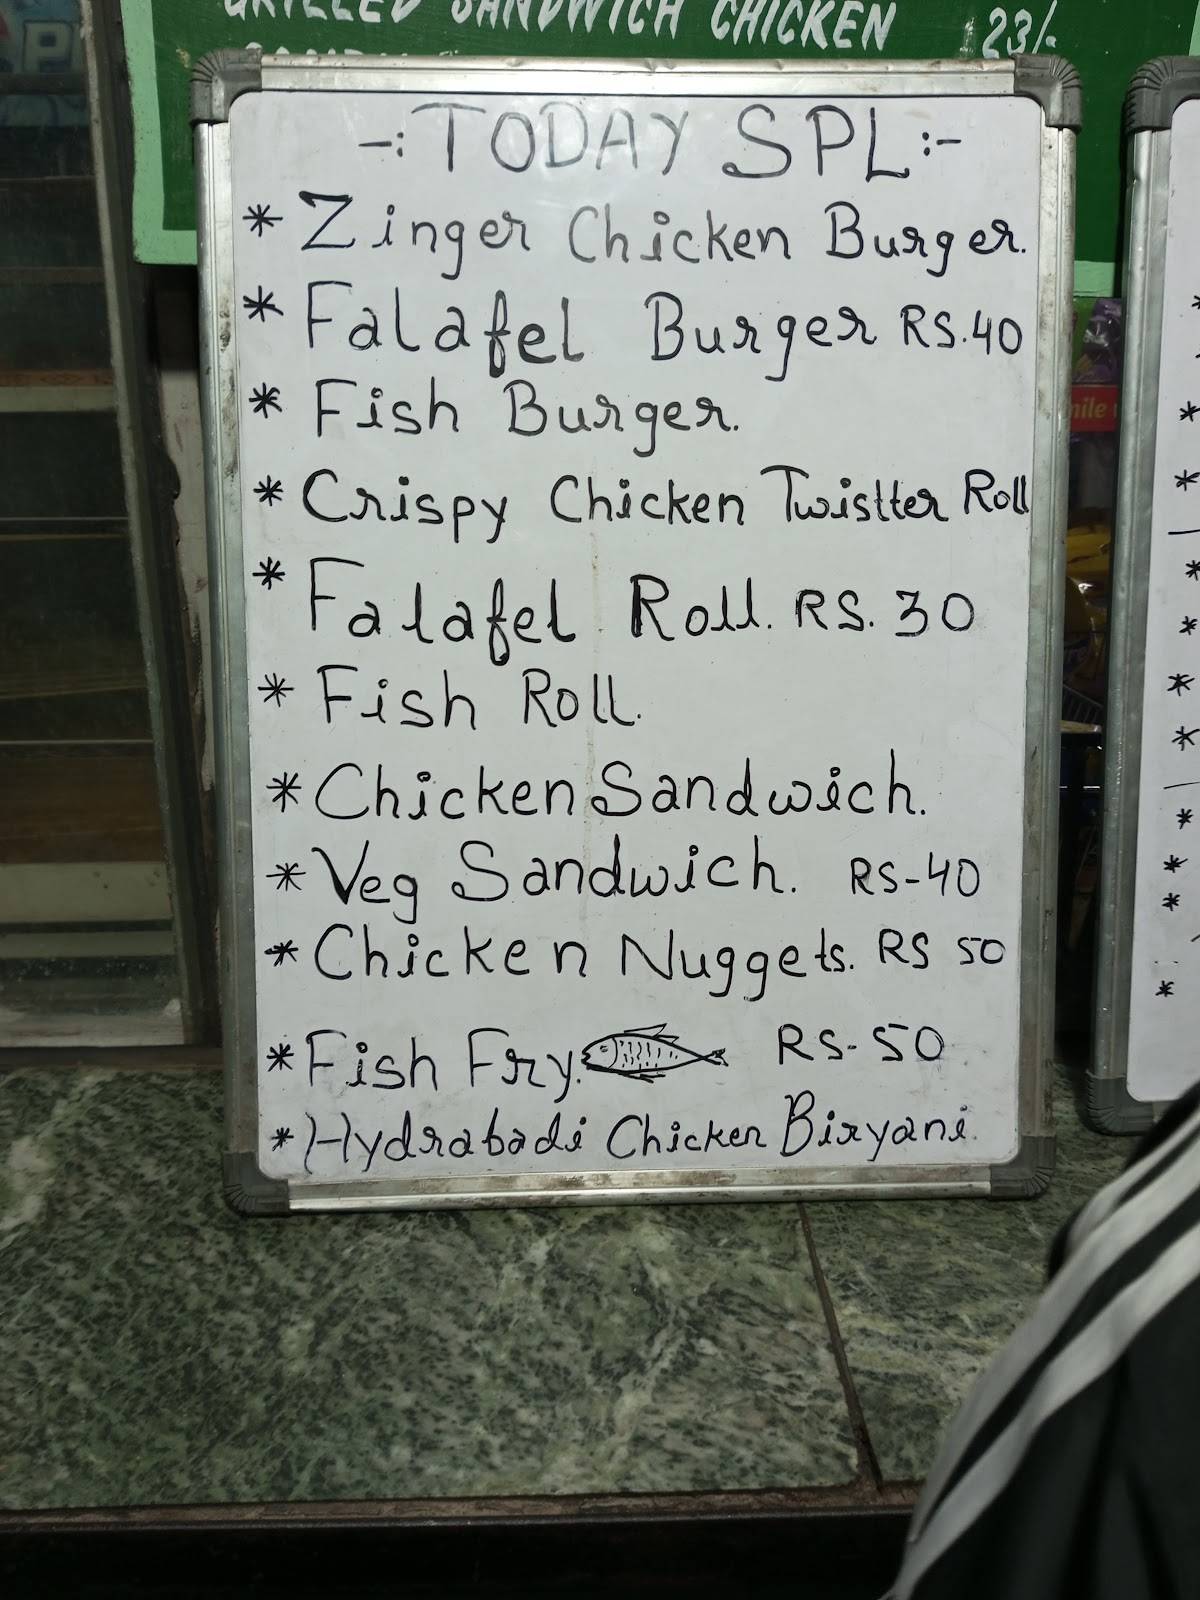 GRILLED SANDWICH CHICKEN 23/-
-: TODAY SPL :-
* Zinger Chicken Burger.
* Falafel Burger RS.40
* Fish Burger.
* Crispy Chicken Twistter Roll
* Falafel Roll. RS. 30
* Fish Roll.
* Chicken Sandwich.
* Veg Sandwich. RS-40
* Chicken Nuggets. RS 50
* Fish Fry. RS-50
* Hydrabadi Chicken Biryani.